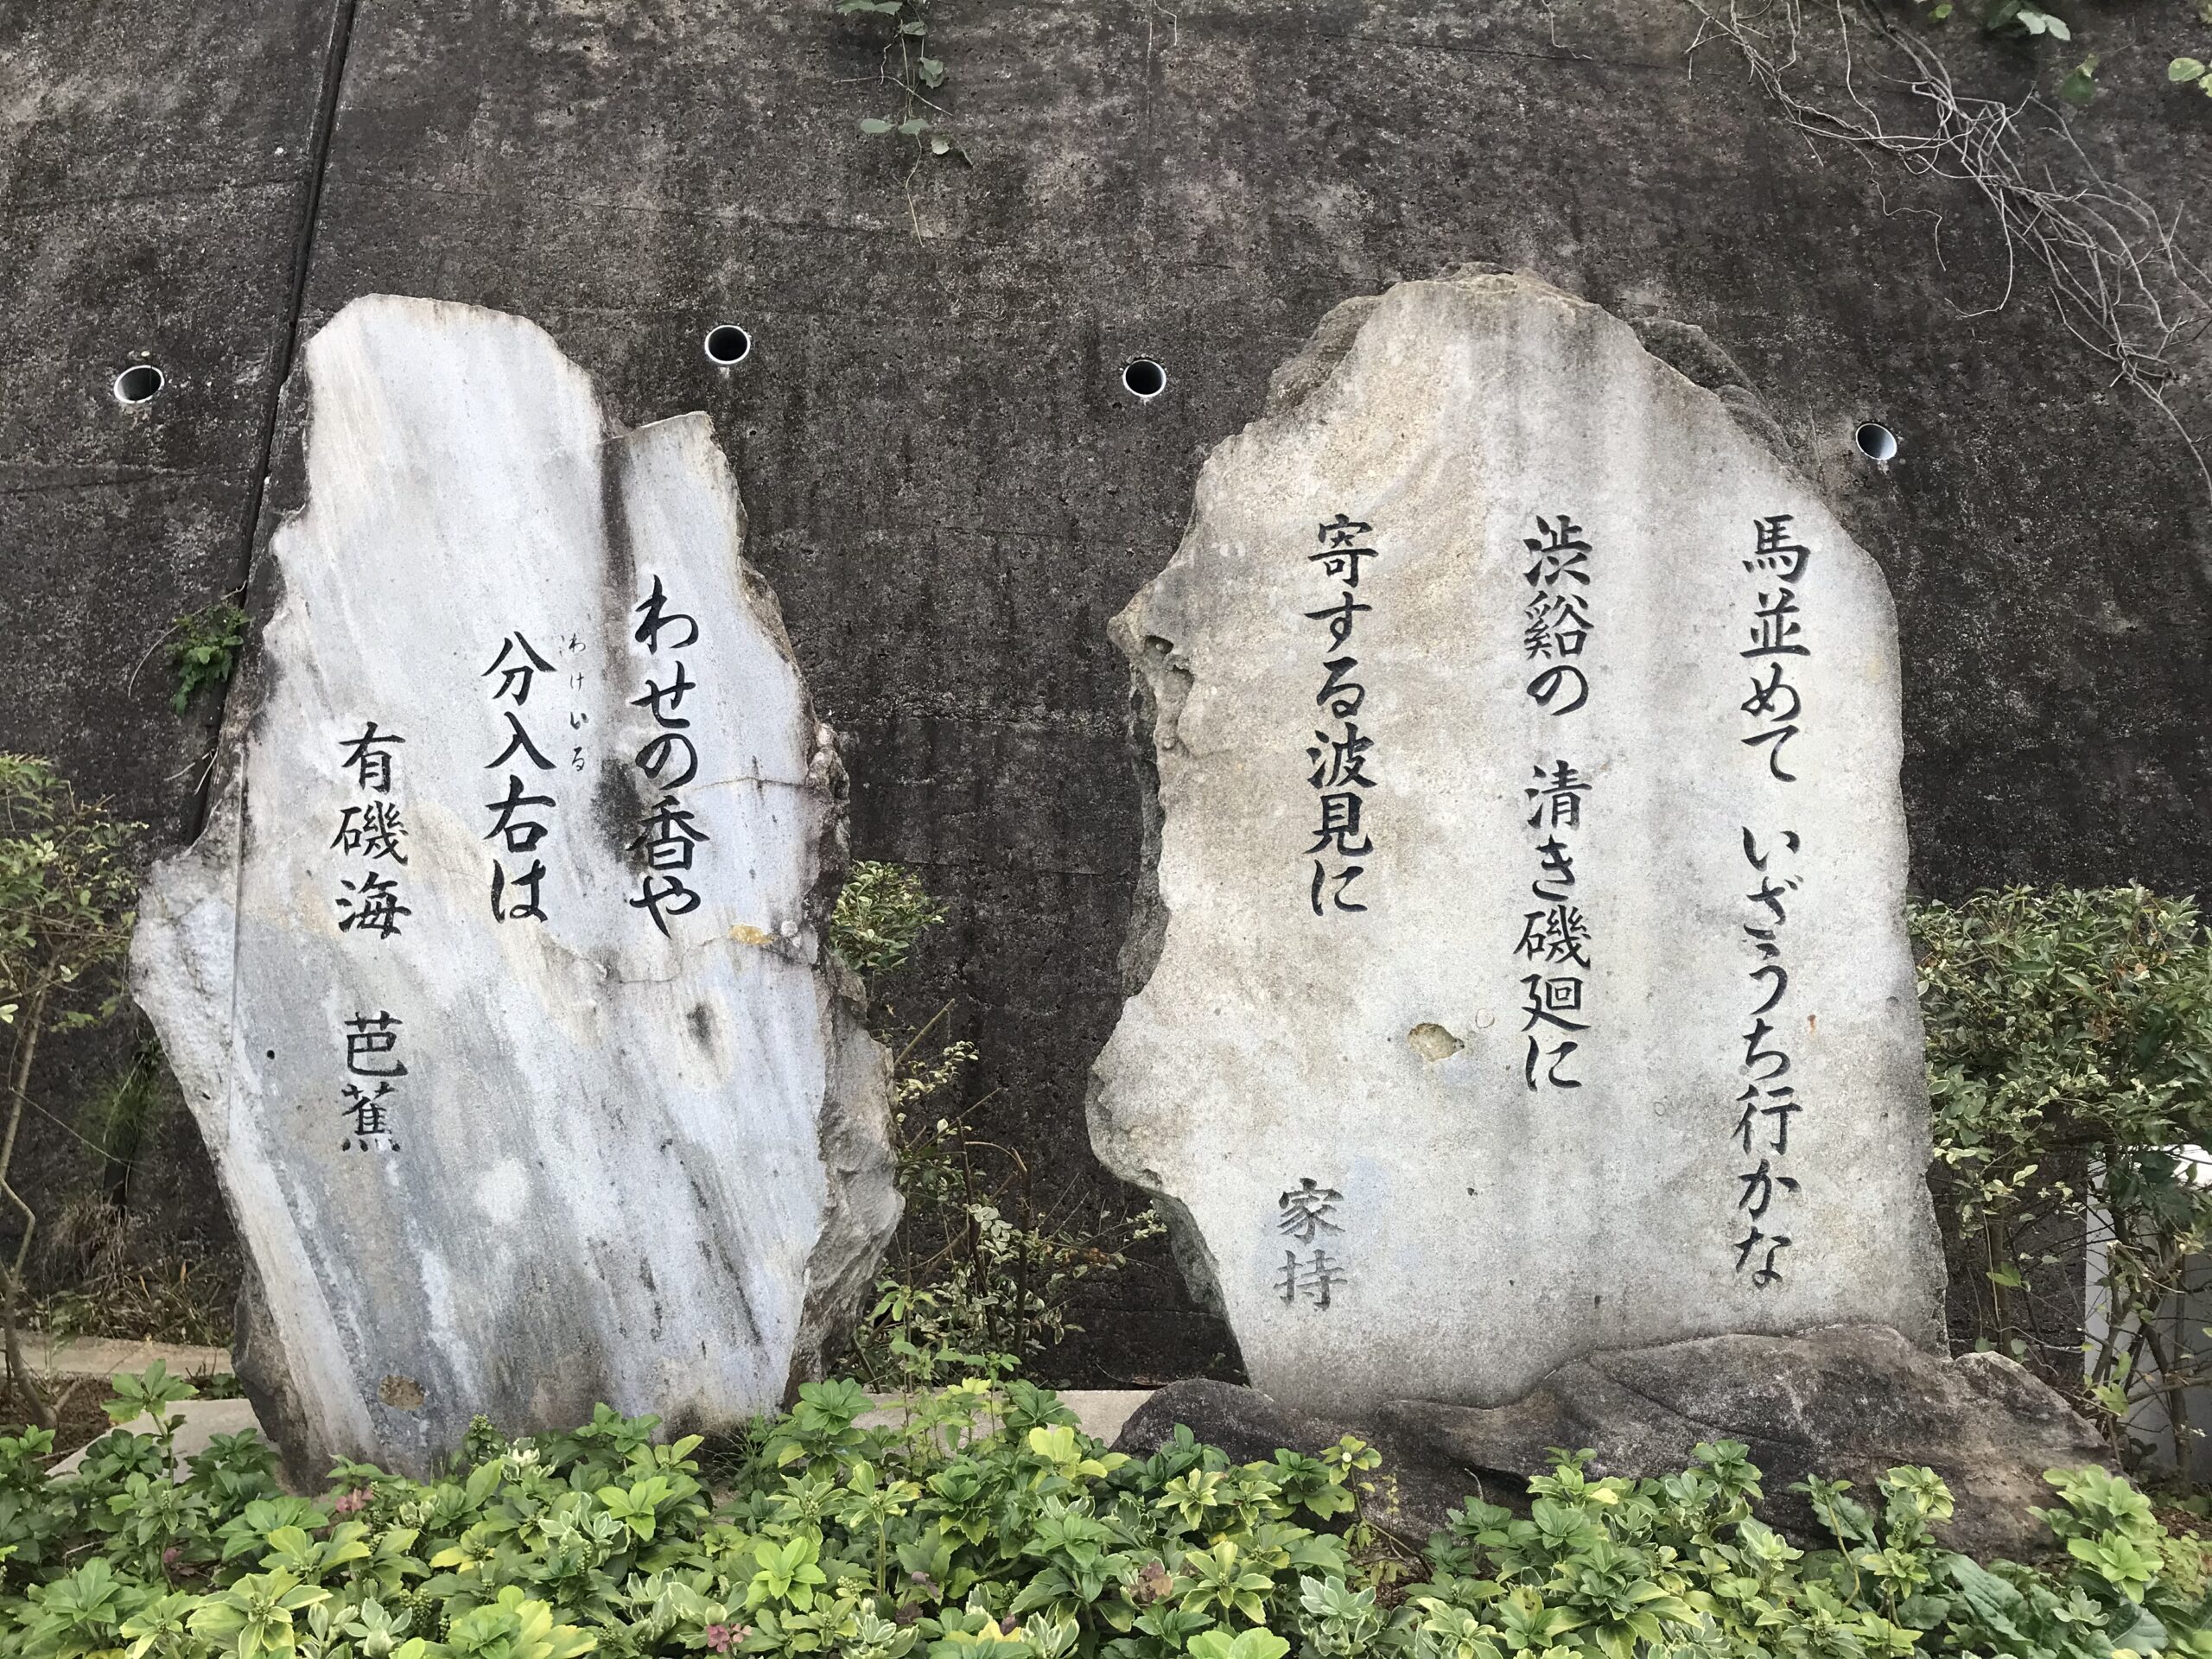 馬並めて いざうち行かな
渋谿の 清き磯廻に
寄する波見に
家持
わせの香や
わけいる
分入右は
有磯海 芭蕉